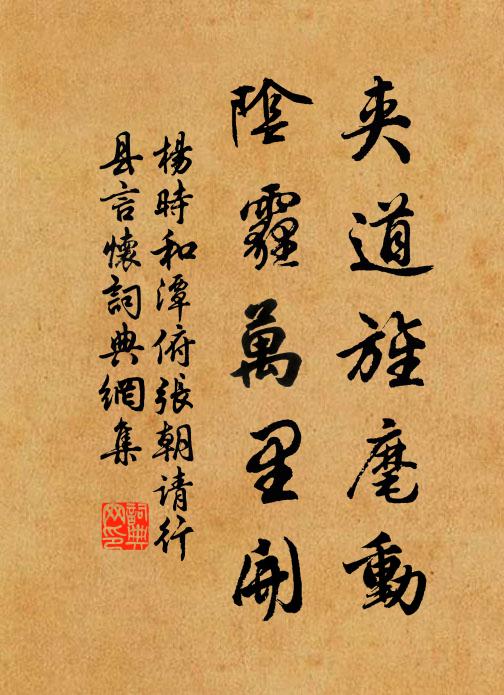 夹道旌麾動
陰霾萬里開
楊時和潭俯張朝请行
县言懷詞典網集
詞典
网印